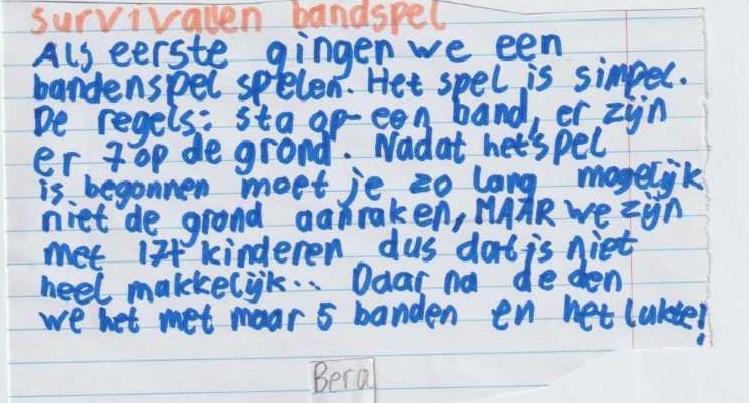 survivallen bandspel
Als eerste gingen we een
bandenspel spelen. Het spel is simpel.
De regels: sta op een band, er zijn
er 7 op de grond. Nadat het spel
is begonnen moet je zo lang mogelijk
niet de grond aanraken, MAAR we zijn
met 17+ kinderen dus dat is niet
heel makkelijk.. Daar na de den
we het met maar 5 banden en het lukte!
Bera